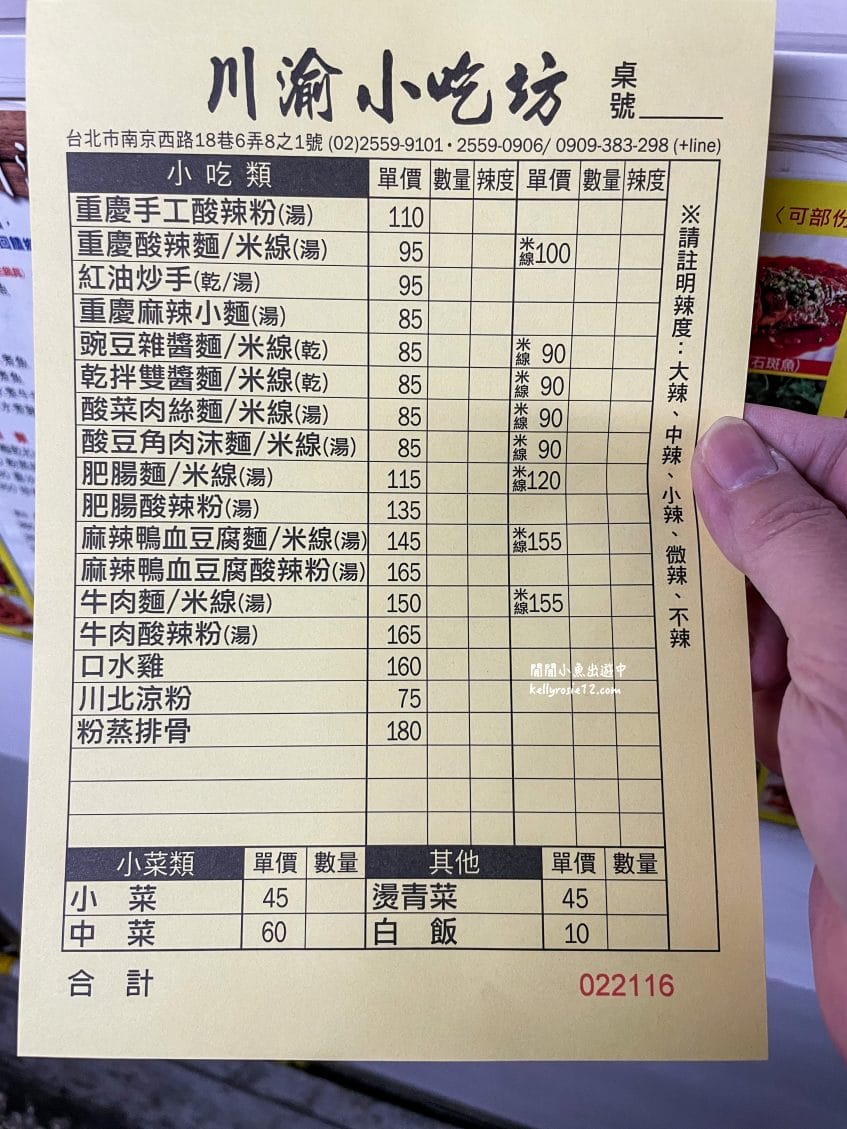 川渝小吃坊 桌號
台北市南京西路18巷6弄8之1號 (02)2559-9101・2559-0906/ 0909-383-298 (+line)
小吃類 單價 數量 辣度 單價 數量 辣度
重慶手工酸辣粉(湯) 110
重慶酸辣麵/米線(湯) 95 米線100
紅油炒手(乾/湯) 95
重慶麻辣小麵(湯) 85
豌豆雜醬麵/米線(乾) 85 米線 90
乾拌雙醬麵/米線(乾) 85 米線 90
酸菜肉絲麵/米線(湯) 85 米線 90
酸豆角肉沫麵/米線(湯) 85 米線 90
肥腸麵/米線(湯) 115 米線120
肥腸酸辣粉(湯) 135
麻辣鴨血豆腐麵/米線(湯) 145 米線155
麻辣鴨血豆腐酸辣粉(湯) 165
牛肉麵/米線(湯) 150 米線155
牛肉酸辣粉(湯) 165
口水雞 160
川北涼粉 75
粉蒸排骨 180
※請註明辣度：大辣、中辣、小辣、微辣、不辣
閒閒小魚出遊中
kellyrosie12.com
小菜類 單價 數量 其他 單價 數量
小菜 45 燙青菜 45
中菜 60 白飯 10
合計 022116
〈可部份
石斑魚)